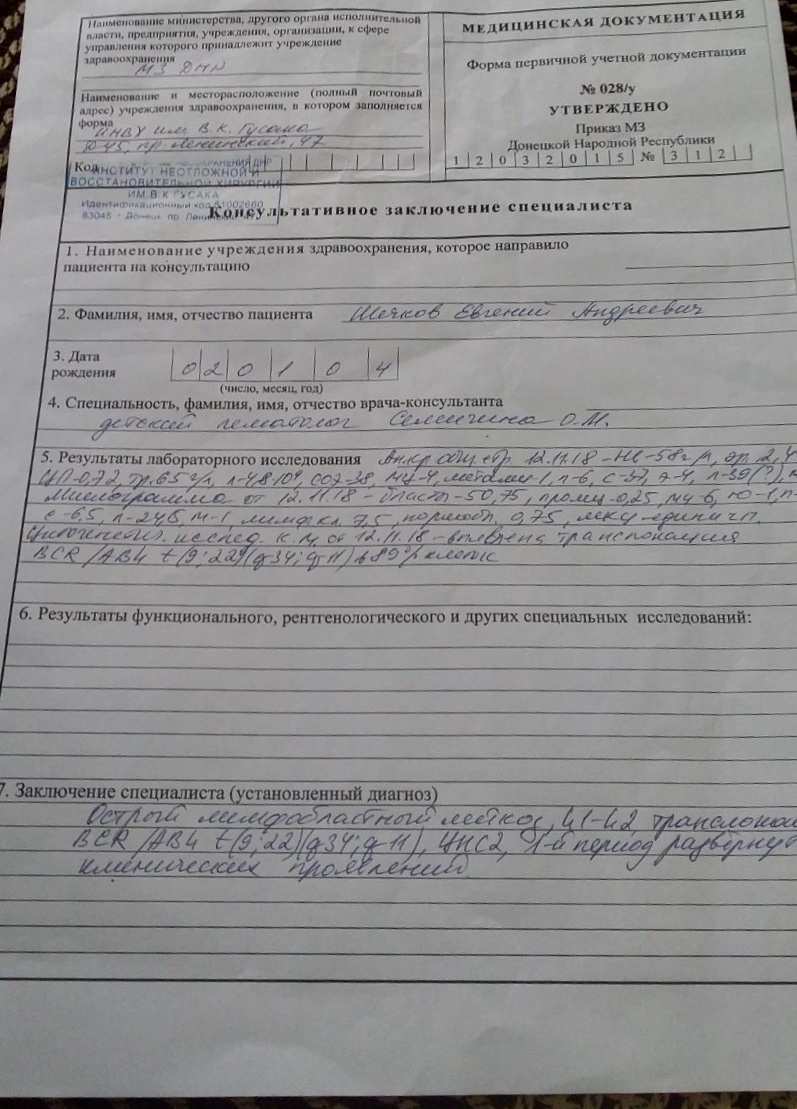 Наименование министерства, другого органа исполнительной
власти, предприятия, учреждения, организации, к сфере
управления которого принадлежит учреждение
здравоохранения
МЗ ДНР
Наименование и месторасположение (полный почтовый
адрес) учреждения здравоохранения, в котором заполняется
форма ИНВХ им. В.К. Гусака
пр. Ленинский, 47
Код
ИНСТИТУТ НЕОТЛОЖНОЙ И
ВОССТАНОВИТЕЛЬНОЙ ХИРУРГИИ
ИМ.В.К.ГУСАКА
Идентификационный код 51002660
83045 Донецк пр. Ленинский
МЕДИЦИНСКАЯ ДОКУМЕНТАЦИЯ
Форма первичной учетной документации
№ 028/у
УТВЕРЖДЕНО
Приказ МЗ
Донецкой Народной Республики
12032015 № 312
Консультативное заключение специалиста
1. Наименование учреждения здравоохранения, которое направило
пациента на консультацию
2. Фамилия, имя, отчество пациента Евгений Андреевич
3. Дата
рождения 020104
(число, месяц, год)
4. Специальность, фамилия, имя, отчество врача-консультанта
детский гематолог Семичина О.М.
5. Результаты лабораторного исследования Ан.кр общ. 12.11.18 – Нв – 58 г/л, эр. 2,4
ЦП-0,72, тр. 65 г/л, п-6, с-37, э-4, л-39(?),
Миелограмма от 12.11.18 – бласты – 50,75, промиел. 0,25, ми-6, ю-1,
с-6,5, л-24,5, м-1, 7,5, 0,75, мкц единичн.
Цитогенетич. исслед. к.м. от 12.11.18 – выявлена транслокация
t(9;22)(q34;q11) в 89% клеток
6. Результаты функционального, рентгенологического и других специальных исследований:
7. Заключение специалиста (установленный диагноз)
Острый лимфобластный лейкоз, L1-L2,
t(9;22)(q34;q11), ЦНС2, I-й период
клинических проявлений